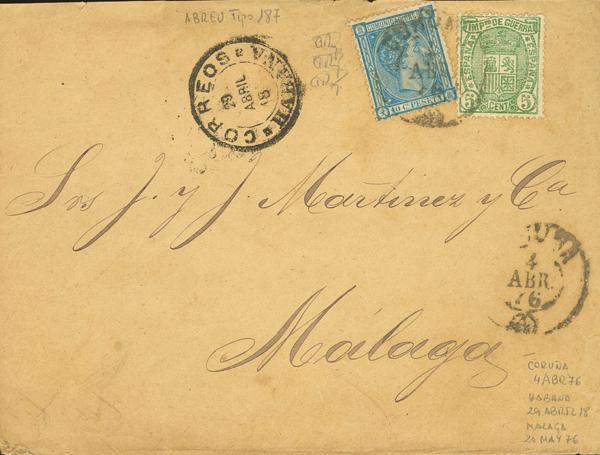 ABREU Tipo 187
COMUNICACIONES
10 C. PESETA
IMPTO DE GUERRA
ESPAÑA
ESPAÑA
5 CENTS 5
CORREOS
HABANA
29
ABRIL
18
Srs J. y J. Martinez y Ca
4
ABR.
76
Málaga
CORUÑA
4 ABR 76
HABANA
29 ABRIL 18
MALAGA
20 MAY 76